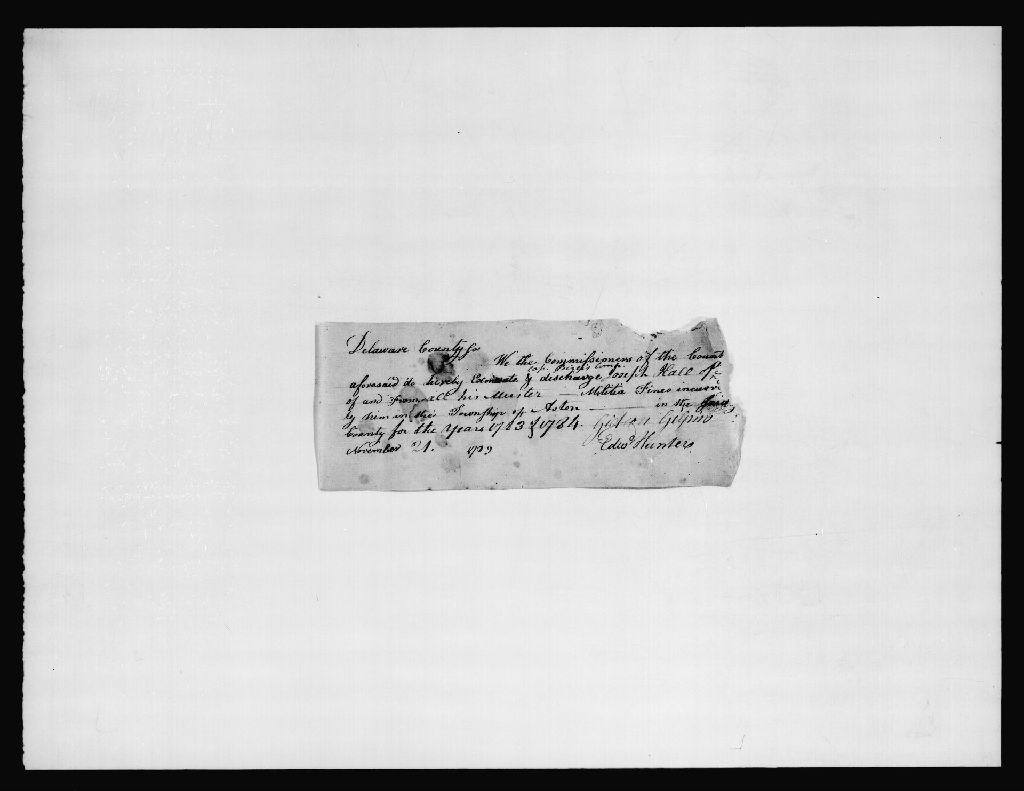 Delaware County ss
We the Commissioners of the Count
Cap. Comp.
aforesaid do hereby Exonerate & discharge Joseph Hall off
of and From all his Muster Militia Fines incurr
by him in the Township of Aston in the said
County for the Years 1783 & 1784.
November 21. 1789
Edwd Hunter